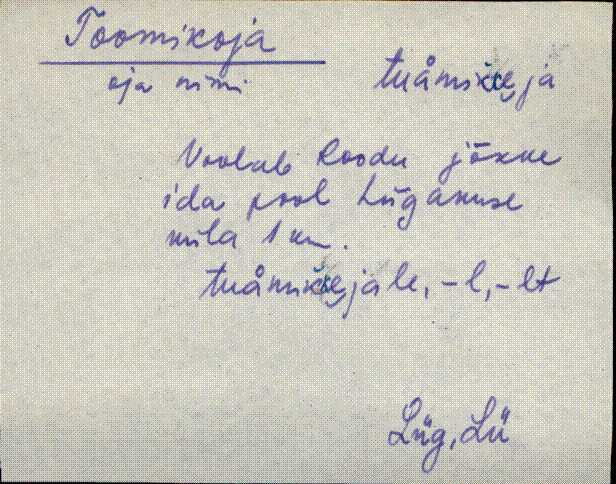 Toomikoja
oja nimi
tuåmikueja
Voolab Soodu jõkke
ida pool Lüganuse
küla 1 km.
tuåmikuejale, -l, -lt
Lüg, Lü